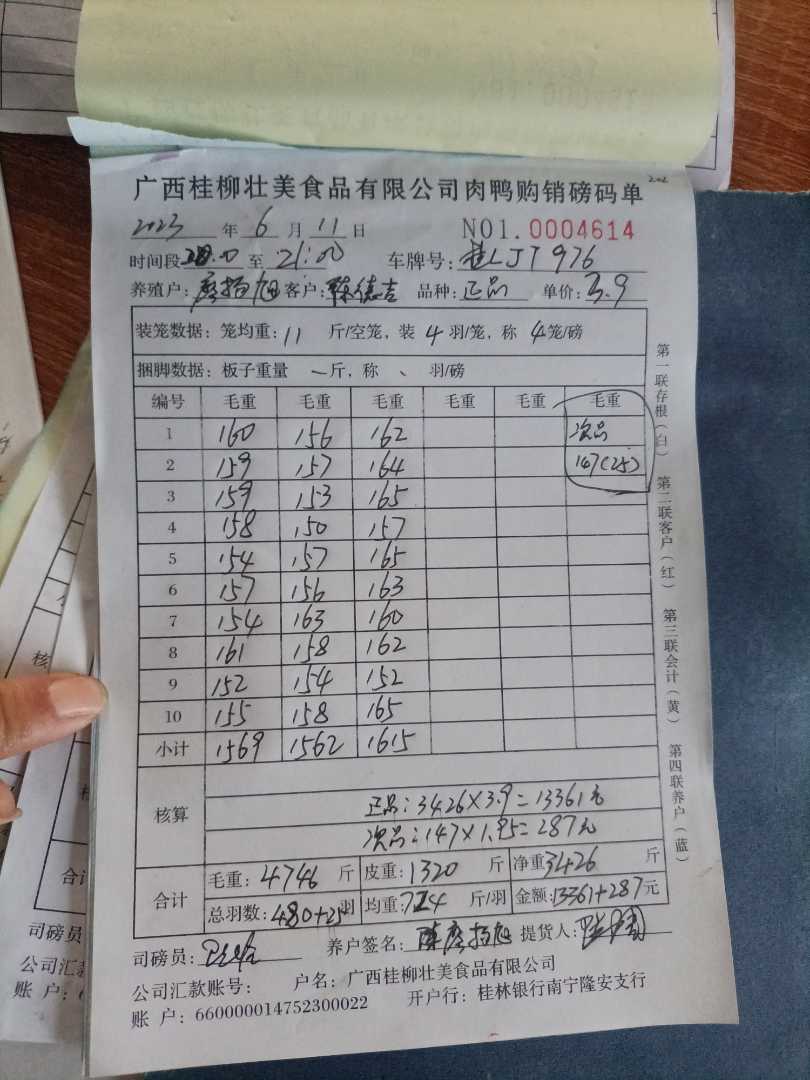 广西桂柳壮美食品有限公司肉鸭购销磅码单
2023 年 6 月 11 日 NO1.0004614
时间段 至 21:00 车牌号: LJT976
养殖户:廖扬旭 客户:陈德吉 品种:正品 单价:3.9
装笼数据:笼均重:11 斤/空笼,装 4 羽/笼,称 4笼/磅
捆脚数据:板子重量 斤,称 、 羽/磅
编号 毛重 毛重 毛重 毛重 毛重 毛重
1 160 156 162 次品
2 159 157 164 147(25)
3 159 153 165
4 158 150 157
5 154 157 165
6 157 156 163
7 154 163 160
8 161 158 162
9 152 154 152
10 155 158 165
小计 1569 1562 1615
核算
正品:3426×3.9=13361元
次品:147×1.95=287元
合计
毛重:4746 斤 皮重:1320 斤 净重3426 斤
总羽数:480+25羽 均重:7.14 斤/羽 金额:13361+287元
司磅员: 养户签名: 廖扬旭 提货人:
公司汇款账号: 户名:广西桂柳壮美食品有限公司
账 户:660000014752300022 开户行:桂林银行南宁隆安支行
第一联存根(白)
第二联客户(红)
第三联会计(黄)
第四联养户(蓝)
核
合计
司磅员
公司汇款
账 户:6